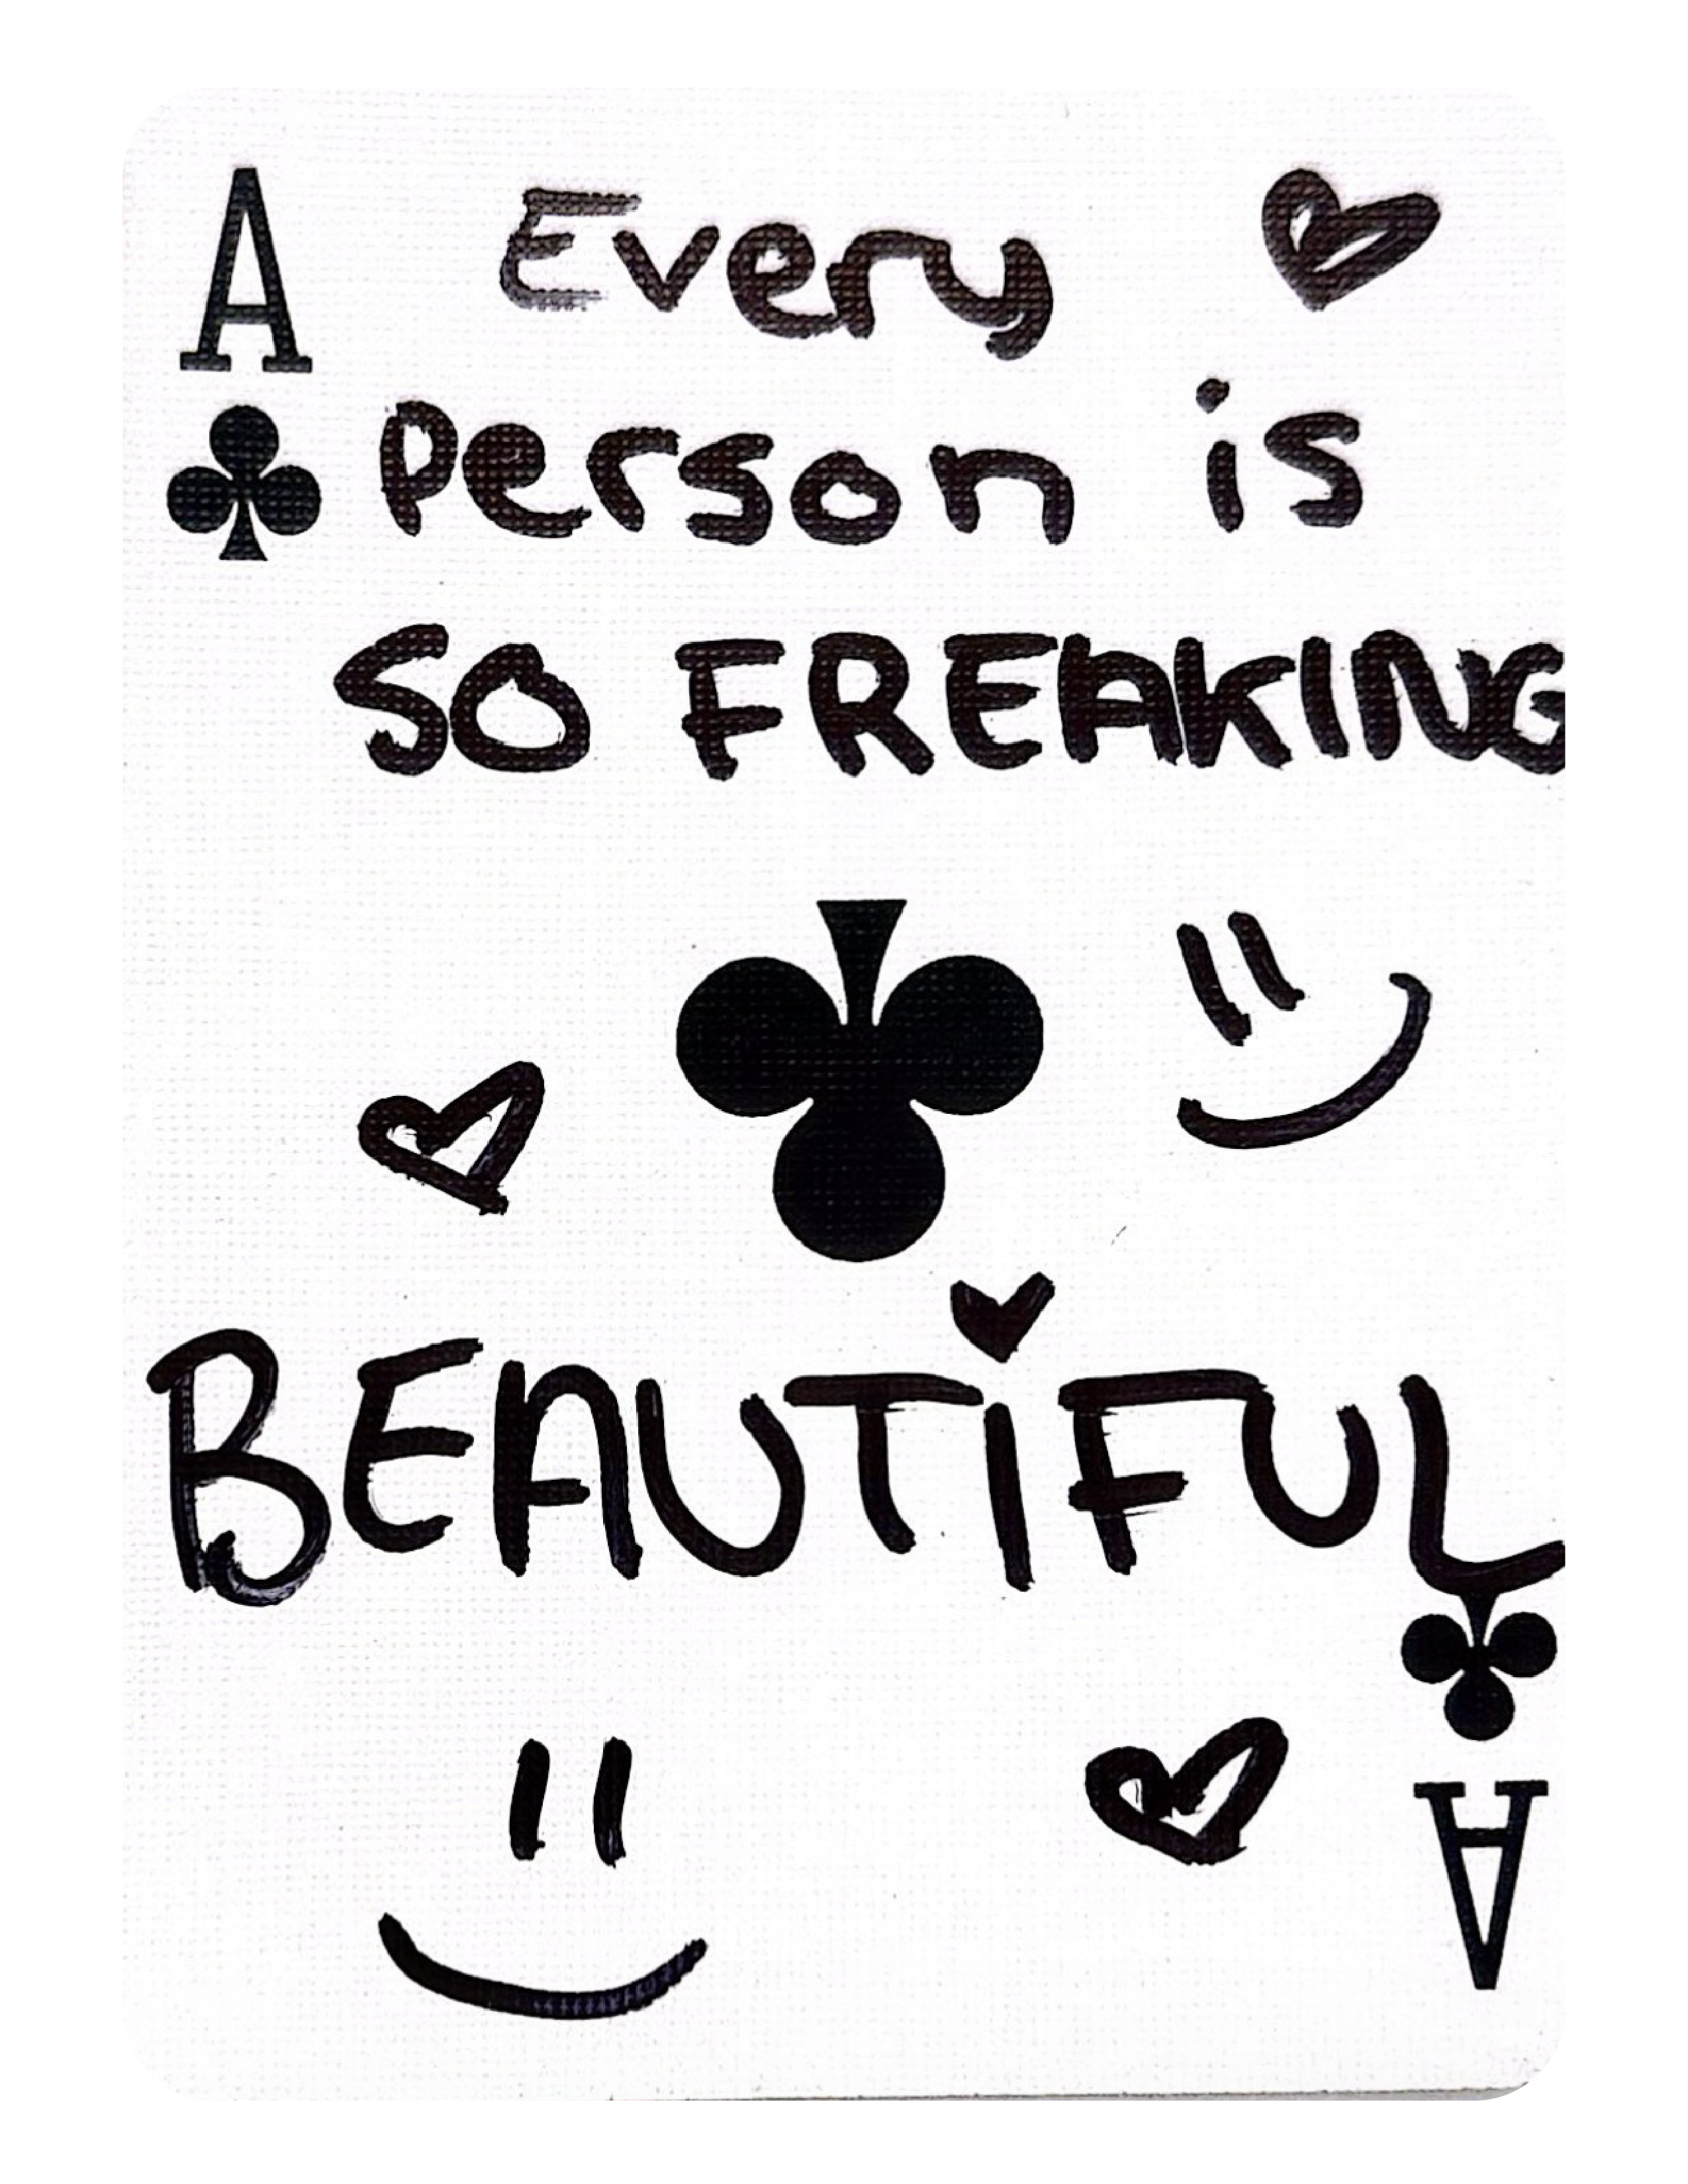 A
Every
Person is
SO FREAKING
BEAUTiFUL
A